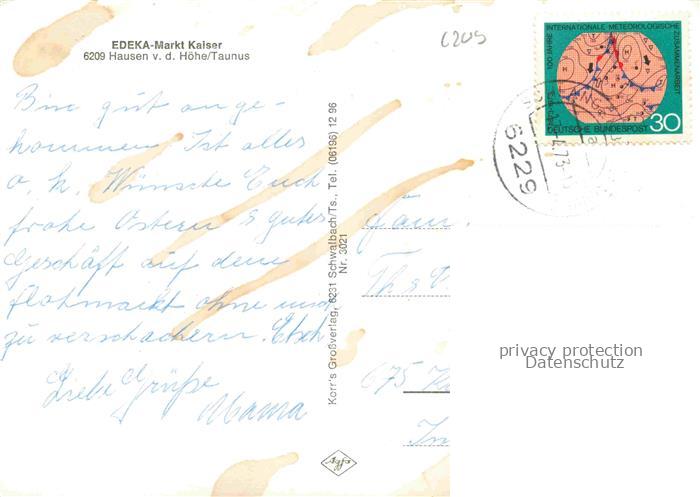 EDEKA-Markt Kaiser
6209 Hausen v. d. Höhe/Taunus
6209
Bin gut ange-
kommen. Ist alles
o. k. Wünsche Euch
frohe Ostern & gutes
Geschäft auf dem
flohmarkt ohne mich
zu verschachern. Etsch
Liebe Grüße
Mama
Korr's Großverlag, 6231 Schwalbach/Ts., Tel. (06196) 12 96
Nr. 3021
100 JAHRE INTERNATIONALE METEOROLOGISCHE ZUSAMMENARBEIT
DEUTSCHE BUNDESPOST 30
6229
4.73
Fam.
Th
675
privacy protection
Datenschutz
Agfa